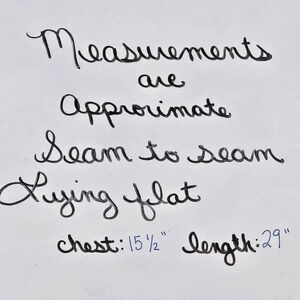 Measurements
are
Approximate
Seam to seam
Lying flat
chest: 15 1/2" length: 29"